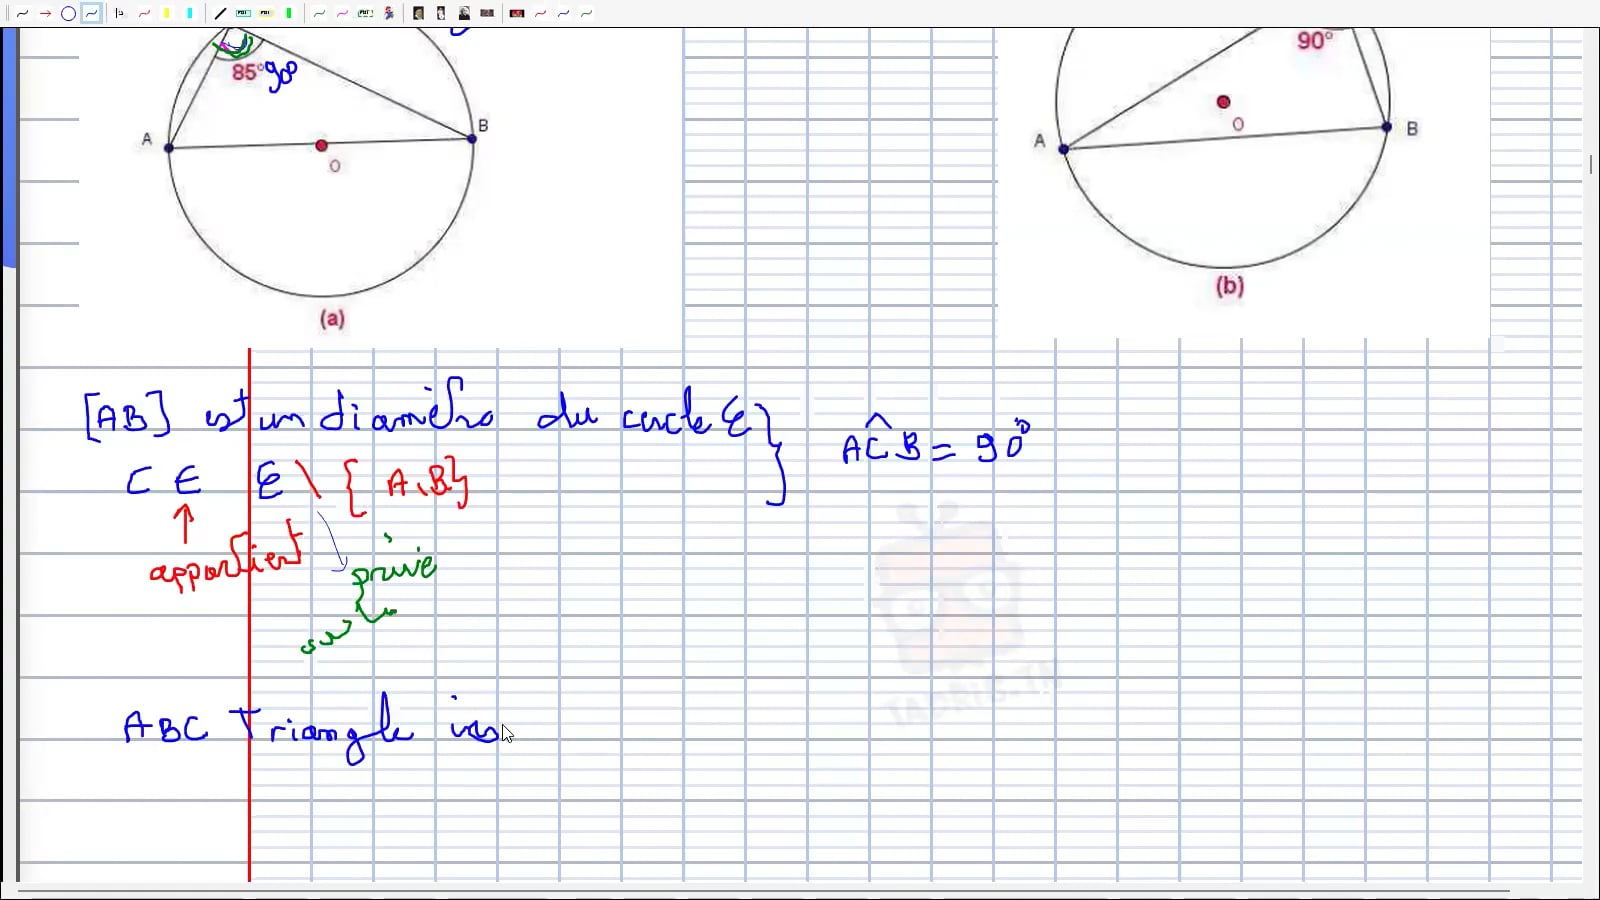 85° 90°
90°
A B
O
A B
O
(a)
(b)
[AB] est un diamètre du cercle ℰ
C ∈ ℰ \ { A, B}
AĈB = 90°
appartient
privé
ou
ABC Triangle ins
TADRIS.TN